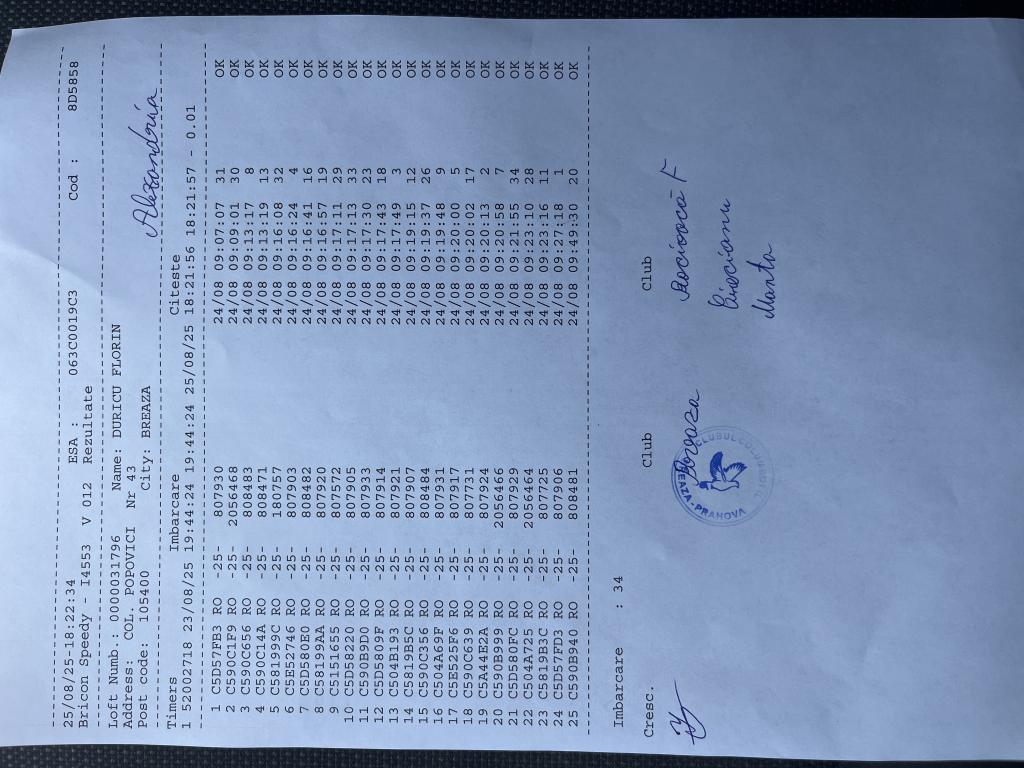 --------------------------------------------------------------------------------
25/08/25-18:22:34 ESA : 063C0019C3 Cod : 8D5858
Bricon Speedy - I4553 V 012 Rezultate
--------------------------------------------------------------------------------
Loft Numb.: 0000031796 Name: DURICU FLORIN
Address: COL. POPOVICI Nr 43
Post code: 105400 City: BREAZA
Alexandria
--------------------------------------------------------------------------------
Timers Imbarcare Citeste
1 52002718 23/08/25 19:44:24 19:44:24 25/08/25 18:21:56 18:21:57 - 0.01
--------------------------------------------------------------------------------
1 C5D57FB3 RO -25- 807930 24/08 09:07:07 31 OK
2 C590C1F9 RO -25- 2056468 24/08 09:09:01 30 OK
3 C590C656 RO -25- 808483 24/08 09:13:17 8 OK
4 C590C14A RO -25- 808471 24/08 09:13:19 13 OK
5 C581999C RO -25- 180757 24/08 09:16:08 32 OK
6 C5E52746 RO -25- 807903 24/08 09:16:24 4 OK
7 C5D580E0 RO -25- 808482 24/08 09:16:41 16 OK
8 C58199AA RO -25- 807920 24/08 09:16:57 19 OK
9 C5151655 RO -25- 807572 24/08 09:17:11 29 OK
10 C5D58220 RO -25- 807905 24/08 09:17:13 33 OK
11 C590B9D0 RO -25- 807933 24/08 09:17:30 23 OK
12 C5D5809F RO -25- 807914 24/08 09:17:43 18 OK
13 C504B193 RO -25- 807921 24/08 09:17:49 3 OK
14 C5819B5C RO -25- 807907 24/08 09:19:15 12 OK
15 C590C356 RO -25- 808484 24/08 09:19:37 26 OK
16 C504A69F RO -25- 807931 24/08 09:19:48 9 OK
17 C5E525F6 RO -25- 807917 24/08 09:20:00 5 OK
18 C590C639 RO -25- 807731 24/08 09:20:02 17 OK
19 C5A44E2A RO -25- 807924 24/08 09:20:13 2 OK
20 C590B999 RO -25- 2056466 24/08 09:20:58 7 OK
21 C5D580FC RO -25- 807929 24/08 09:21:55 34 OK
22 C504A725 RO -25- 2056464 24/08 09:23:10 28 OK
23 C5819B3C RO -25- 807725 24/08 09:23:16 11 OK
24 C5D57FD3 RO -25- 807906 24/08 09:27:18 1 OK
25 C590B940 RO -25- 808481 24/08 09:49:30 20 OK
--------------------------------------------------------------------------------
Imbarcare : 34
Cresc. Club Club
Breaza
CLUBUL COLUMBOFIL
BREAZA-PRAHOVA